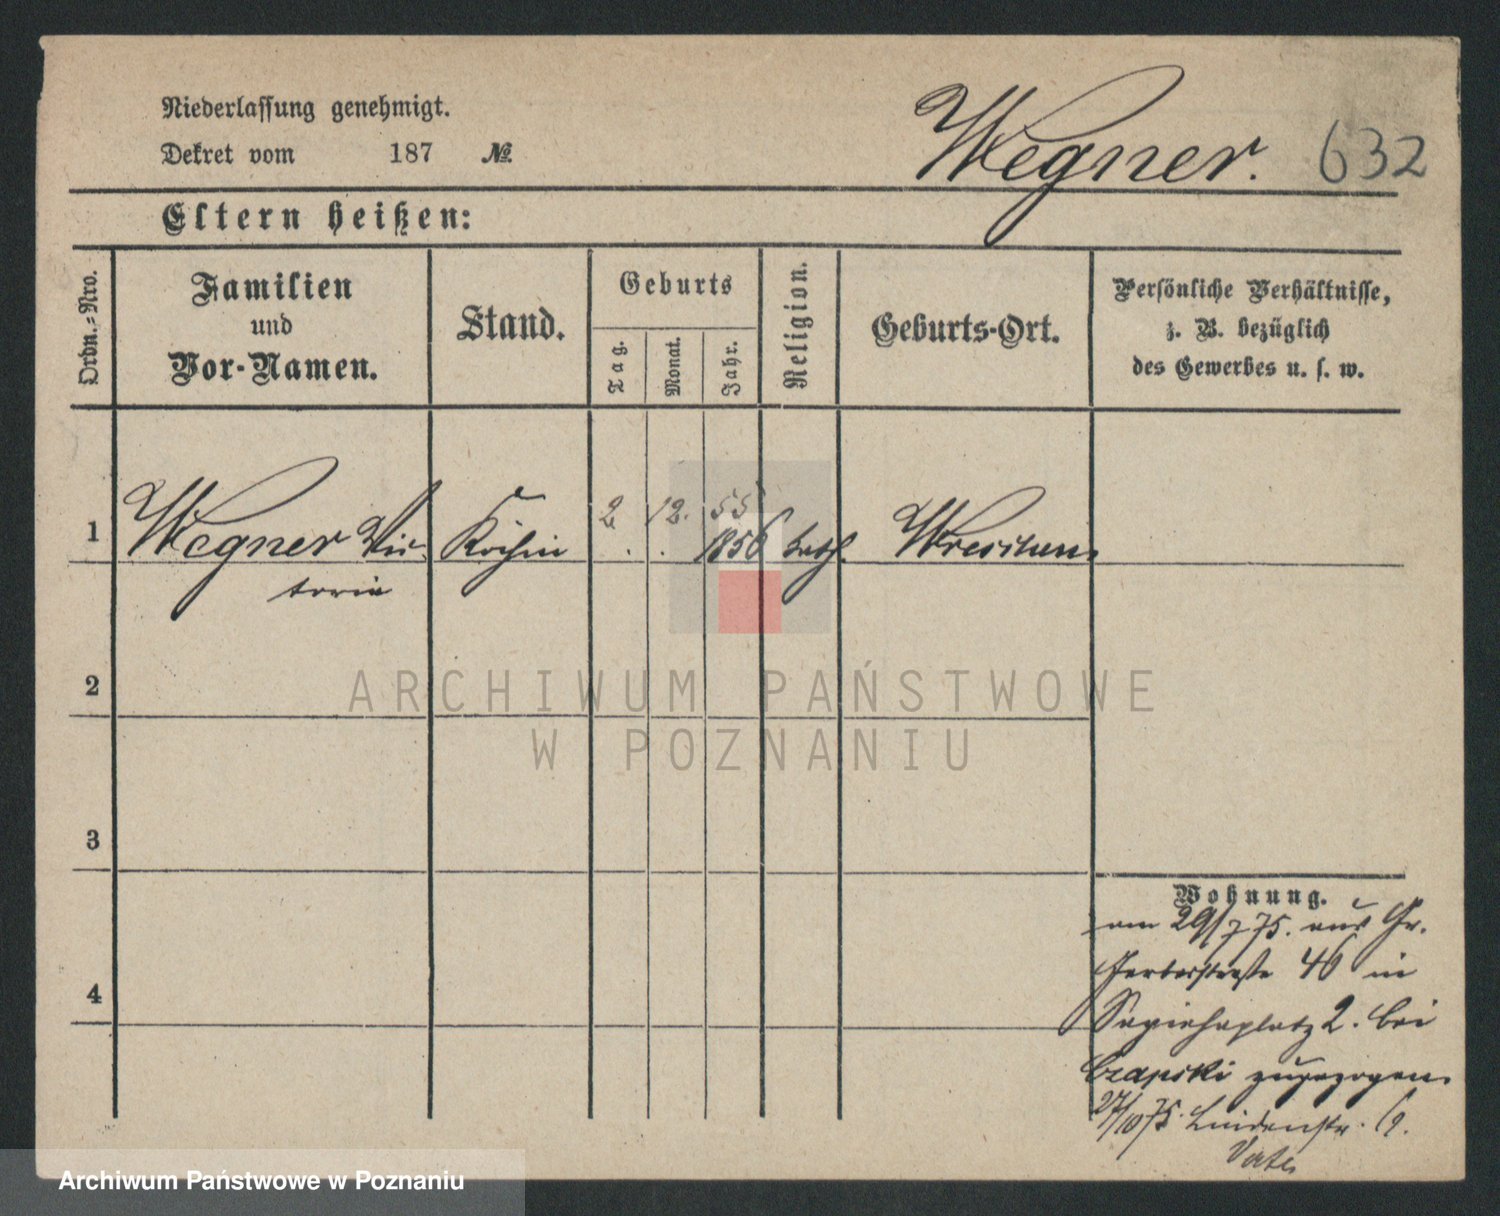 Niederlassung genehmigt.
Dekret vom 187 №
Wegner. 632
Eltern heißen:
Ordn.-Nro.
Familien
und
Vor-Namen.
Stand.
Geburts
Tag.
Monat.
Jahr.
Religion.
Geburts-Ort.
Persönliche Verhältnisse,
z. B. bezüglich
des Gewerbes u. s. w.
2. 12. 55
1 Wegner Vic- Köchin 1856 kath. Wreschen
toria
2
3
4
Wohnung.
am 29/7 75. aus Gr.
Gerberstraße 40 in
Sapiehaplatz 2. bei
Czapski zugezogen.
27/10 75. Lindenstr.
ARCHIWUM PAŃSTWOWE
W POZNANIU
Archiwum Państwowe w Poznaniu